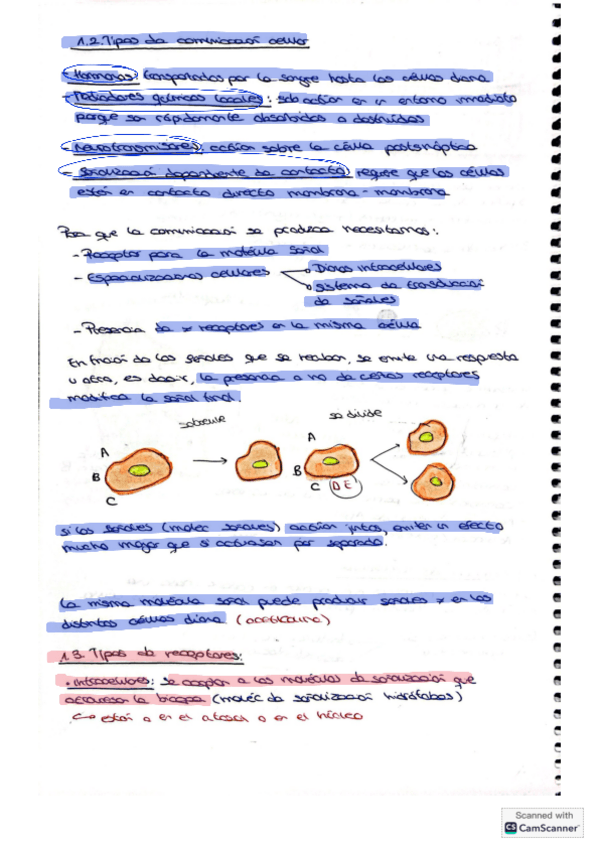 1.2. Tipos de comunicación celular
- Hormonas: transportadas por la sangre hasta las células diana
- Mediadores químicos locales: solo actúan en un entorno inmediato
porque son rápidamente absorbidos o destruidos
- Neurotransmisores: actúan sobre la célula postsináptica
- Señalización dependiente de contacto: requiere que las células
estén en contacto directo membrana-membrana
Para que la comunicación se produzca necesitamos:
- Receptor para la molécula señal
- Especializaciones celulares
Dianas intracelulares
sistema de transducción
de señales
- Presencia de ≠ receptores en la misma célula
En función de las señales que se reciban, se emite una respuesta
u otra, es decir, la presencia o no de ciertos receptores
modifica la señal final.
sobrevive
se divide
A
B
C
A
B
C DE
si las señales (moléc señales) actúan juntas, emiten un efecto
mucho mayor que si actuasen por separado.
La misma molécula señal puede producir señales ≠ en las
distintas células diana (acetilcolina)
1.3. Tipos de receptores:
• intracelulares: se acoplan a las moléculas de señalización que
atraviesan la bicapa (moléc de señalización hidrófobas)
↳ están o en el citosol o en el núcleo
Scanned with
CS CamScanner